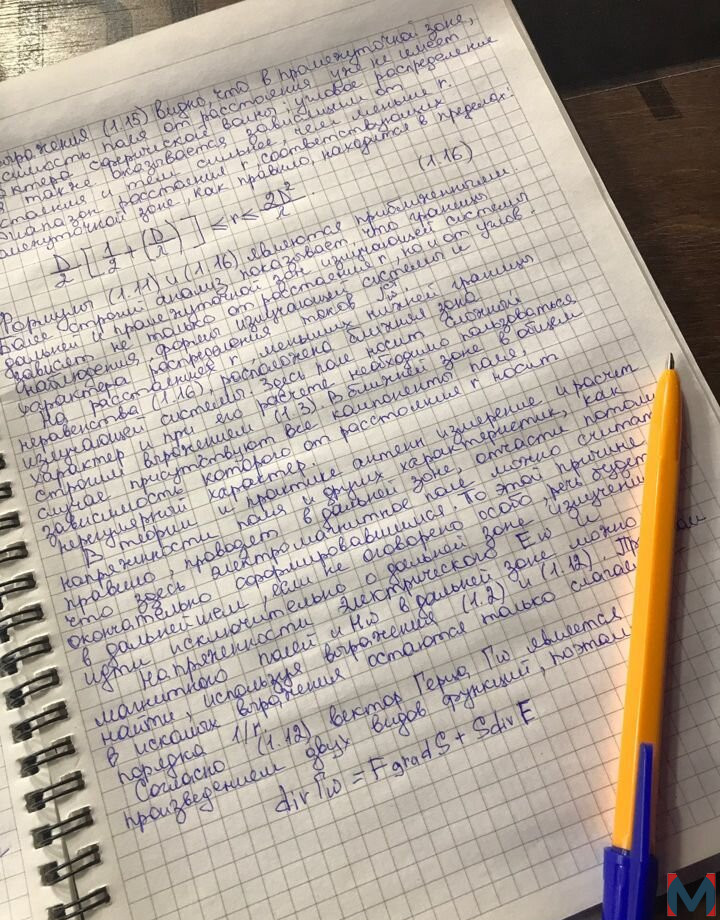 выражения (1.15) видно, что в промежуточной зоне,
поля от расстояния уже не имеет
характера сферической волны: угловое распределение
также оказывается зависящим от
и тем сильнее, чем меньше r.
Диапазон расстояния r, соответствующих
промежуточной зоне, как правило, находится в пределах:
D/2 [1/2 + (D/λ)] ≤ r ≤ 2D²/λ. (1.16)
Формулы (1.11) и (1.16) являются приближенными
более строгий анализ показывает, что границы
дальней и промежуточной зон излучающей системы
зависят не только от расстояния r, но и от углов
наблюдения, формы излучающей системы и
характера распределения токов
На расстояниях r, меньших нижней границы
неравенства (1.16) расположена ближняя зона
излучающей системы. Здесь поле носит сложный
характер и при его расчете необходимо пользоваться
строгим выражением (1.3) В ближней зоне в общем
случае присутствуют все компоненты поля,
зависимость которого от расстояния r носит
нерегулярный характер.
В теории и практике антенн измерение и расчет
напряженности поля и других характеристик, как
правило, проводят в дальней зоне, отчасти потому
что здесь электромагнитное поле можно считать
окончательно сформировавшимся. По этой причине
в дальнейшем, если не оговорено особо, речь будет
идти исключительно о дальней зоне излучения
Напряженности электрического Eω и
магнитного полей и Hω в дальней зоне можно
найти, используя выражения (1.2) и (1.12). При
в искомых выражения остаются только слагаем
порядка 1/r.
Согласно (1.12) вектор Герца Гω является
произведением двух видов функций, поэтом
div Гω = F grad S + S div F